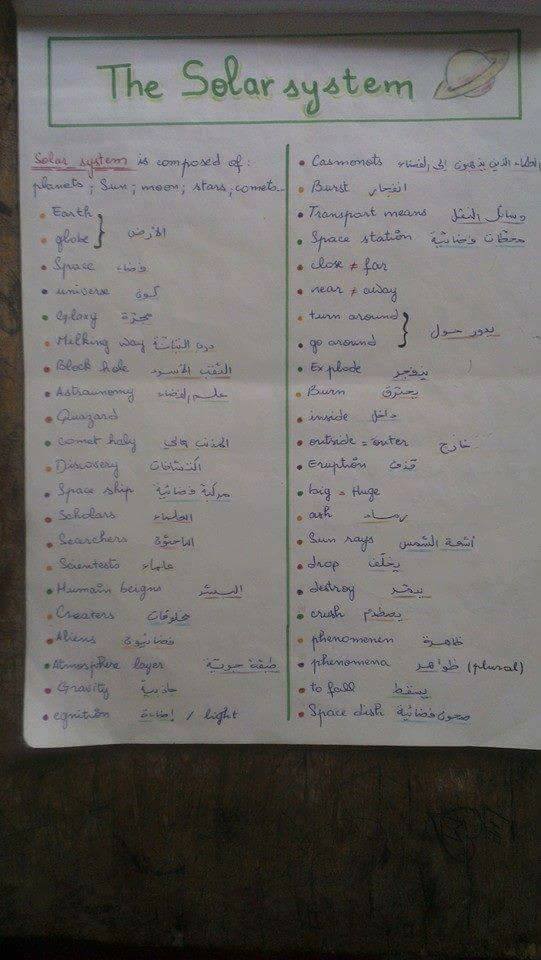 The Solar system
Solar system is composed of:
planets; Sun; moon; stars; comets...
Earth
globe } الأرض
Space فضاء
universe كون
Glaxy مجرّة
Milking way درب التبانة
Black hole الثقب الأسود
Astraunomy علم الفضاء
Quazard
comet haly المذنب هالي
Discovery اكتشافات
Space ship مركبة فضائية
Scholars العلماء
Searchers الباحثون
Scientests علماء
Humain beigns البشر
Creaters مخلوقات
Aliens فضائيون
Atmosphere layer طبقة جوية
Gravity جاذبية
egnition إضاءة / light
Casmonots العلماء الذين يذهبون إلى الفضاء
Burst انفجار
Transport means وسائل النقل
Space station محطات فضائية
close ≠ far
near ≠ away
turn around
go around } يدور حول
Explode ينفجر
Burn يحترق
inside داخل
outside = outer خارج
Eruption قذف
big = Huge
ash رماد
Sun rays أشعة الشمس
drop يخلّف
destroy يدمّر
crush يصطدم
phenomenen ظاهرة
phenomena ظواهر (plural)
to fall يسقط
Space dish صحون فضائية